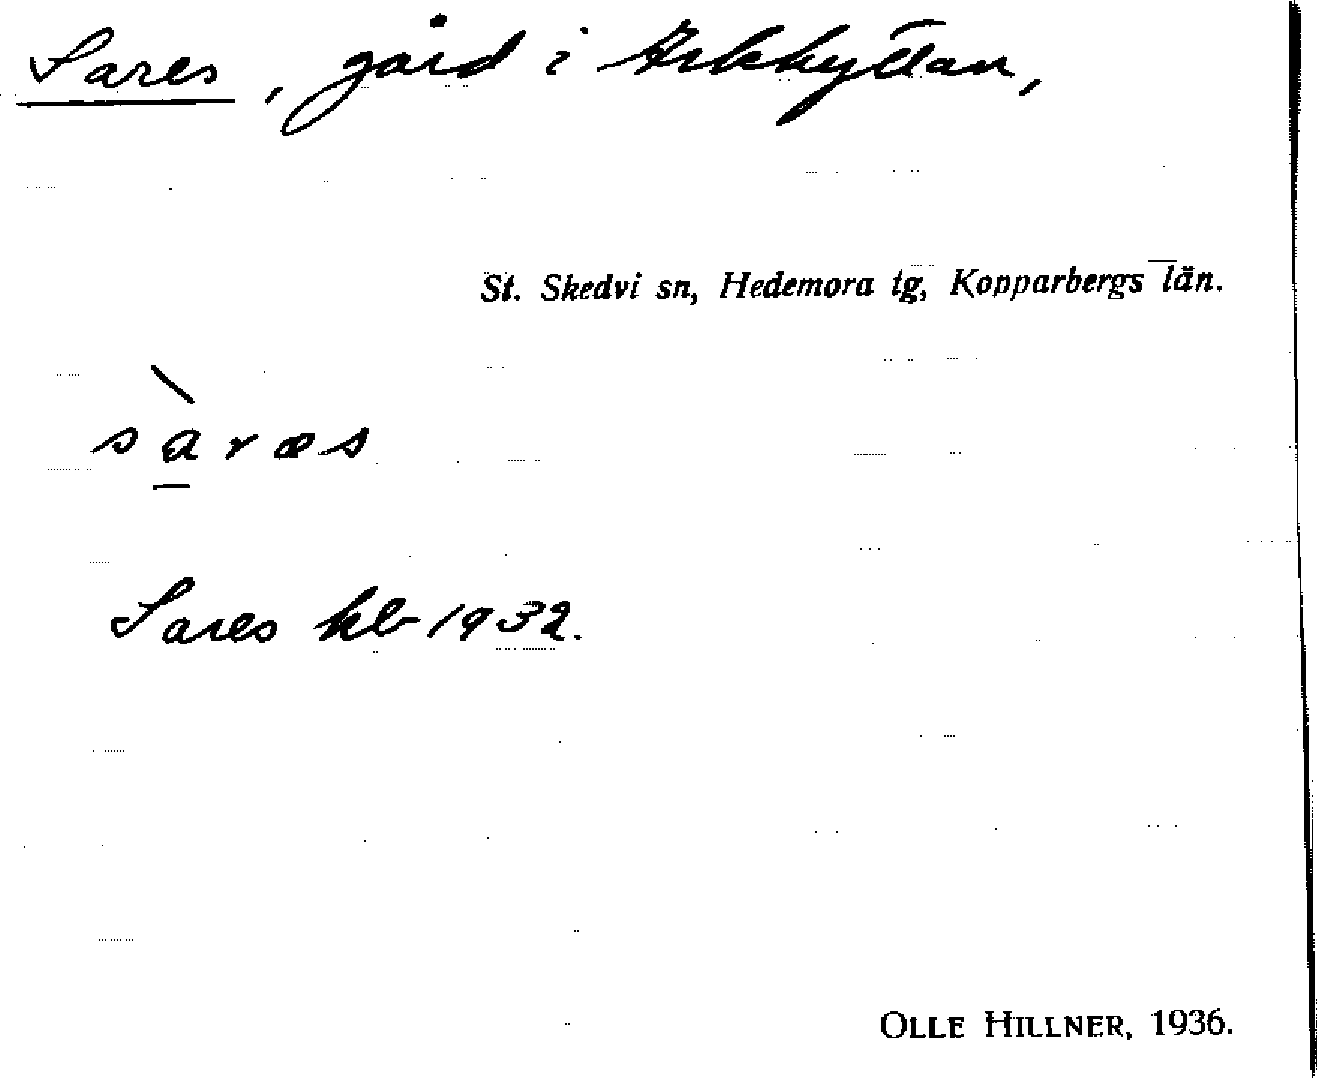 Sares, gård i Arkhyttan,
St. Skedvi sn, Hedemora tg, Kopparbergs län.
sàræs
Sares kb 1932.
OLLE HILLNER, 1936.